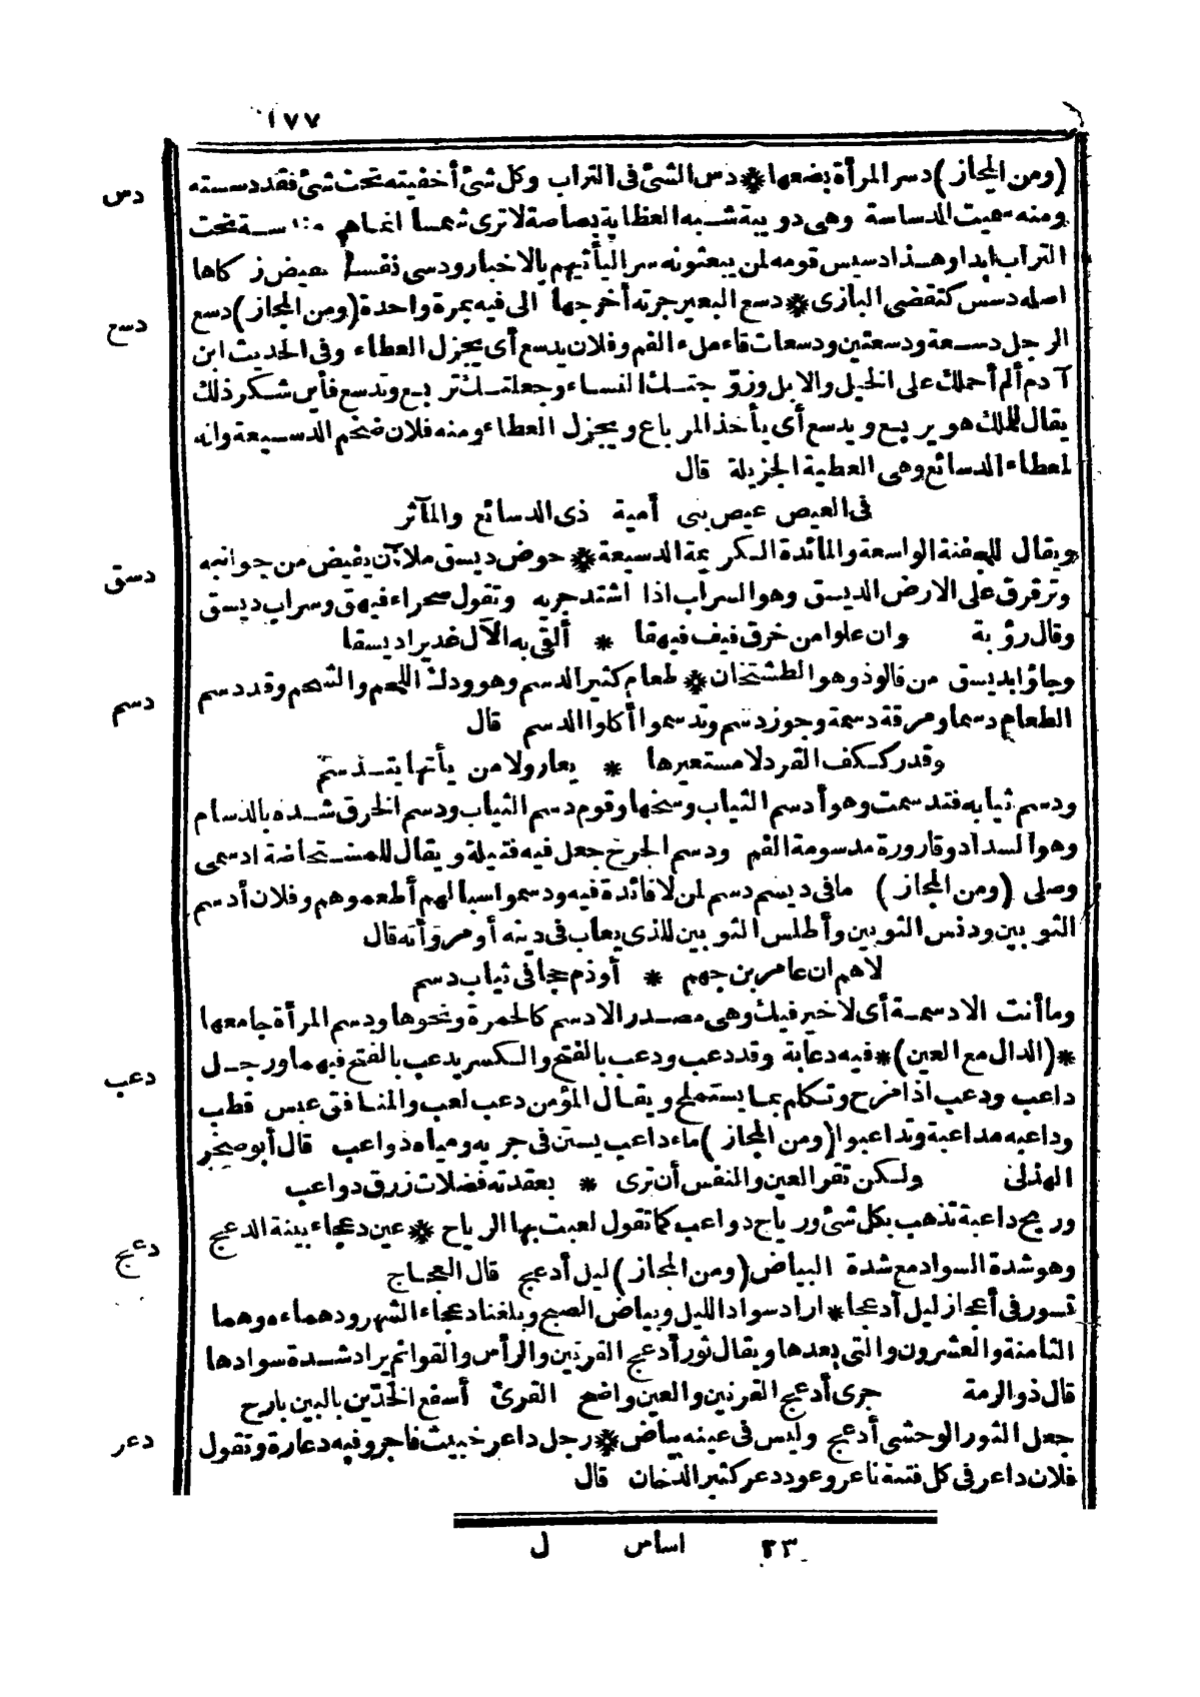 ١٧٧
(ومن المجاز) دسر المرأة بضعها * دس الشئ فى التراب وكل شئ أخفيته تحت شئ فقد دسسته
دس
ومنه سميت الدساسة وهى دويبة شبه العظاية بصاصة لا ترى شمسا انما هى مندسة تحت
التراب ابدا وهذا دسيس قومه لمن يبعثونه سرا ليأتيهم بالاخبار ودسى نفسه نقيض زكاها
اصله دسس كتقضى البازى * دسع البعير جرته أخرجها الى فيه بمرة واحدة (ومن المجاز) دسع
دسع
الرجل دسعة ودسعتين ودسعات قاء ملء الفم وفلان يدسع أى يجزل العطاء وفى الحديث ابن
آدم ألم أحملك على الخيل والابل وزوجتك النساء وجعلتك تربع وتدسع فأين شكر ذلك
يقال للملك هو يربع ويدسع أى يأخذ المرباع ويجزل العطاء ومنه فلان ضخم الدسيعة وانه
لمعطاء الدسائع وهى العطية الجزيلة قال
فى العيص عيص بنى أمية ذى الدسائع والمآثر
ويقال للجفنة الواسعة والمائدة الكريمة الدسيعة * حوض ديسق ملآن يفيض من جوانبه
دسق
وترقرق على الارض الديسق وهو السراب اذا اشتد جريه وتقول صحراء فيهق وسراب ديسق
وقال رؤبة وان علوا من خرق فيف فيهقا * ألقى به الآل غديرا ديسقا
وجاؤا بديسق من فالوذ وهو الطشتخان * طعام كثير الدسم وهو ودك اللحم والشحم وقد دسم
دسم
الطعام دسما ومرقة دسمة وجوز دسم وتدسموا أكلوا الدسم قال
وقدر ككف القرد لا مستعيرها * يعار ولا من يأتها يتدسم
ودسم ثيابه فتدسمت وهو أدسم الثياب وسخها وقوم دسم الثياب ودسم الخرق شده بالدسام
وهو السداد وقارورة مدسومة الفم ودسم الجرح جعل فيه فتيلة ويقال للمستحاضة ادسمى
وصلى (ومن المجاز) مافى ديسم دسم لمن لا فائدة فيه ودسموا سبالهم أطعموهم وفلان أدسم
الثوبين ودنس الثوبين وأطلس الثوبين للذى يعاب فى دينه أو مروأته قال
لاهم ان عامر بن جهم * أوذم حجا فى ثياب دسم
وما أنت الا دسمة أى لا خير فيك وهى مصدر الادسم كالحمرة ونحوها ودسم المرأة جامعها
*(الدال مع العين)* فيه دعابة وقد دعب ودعب بالفتح والكسر يدعب بالفتح فيهما ورجل
دعب
داعب ودعب اذا مزح وتكلم بما يستملح ويقال المؤمن دعب لعب والمنافق عبس قطب
وداعبه مداعبة وتداعبوا (ومن المجاز) ماء داعب يستن فى جريه ومياه دواعب قال أبو صخر
الهذلى ولكن تقر العين والنفس أن ترى * بعقدته فضلات زرق دواعب
وريح داعبة تذهب بكل شئ ورياح دواعب كما تقول لعبت بها الرياح * عين دعجاء بينة الدعج
دعج
وهو شدة السواد مع شدة البياض (ومن المجاز) ليل أدعج قال العجاج
تسور فى أعجاز ليل أدعجا * اراد سواد الليل وبياض الصبح وبلغنا دعجاء الشهر ودهماءه وهما
الثامنة والعشرون والتى بعدها ويقال ثور أدعج القرنين والرأس والقوائم يراد شدة سوادها
قال ذو الرمة جرى أدعج القرنين والعين واضح القرى أسفع الخدين بالبين بارح
جعل الثور الوحشى أدعج وليس فى عينه بياض * رجل داعر خبيث فاجر وفيه دعارة وتقول
دعر
فلان داعر فى كل فتنة ناعر وعود دعر كثير الدخان قال
٢٣ اساس ل